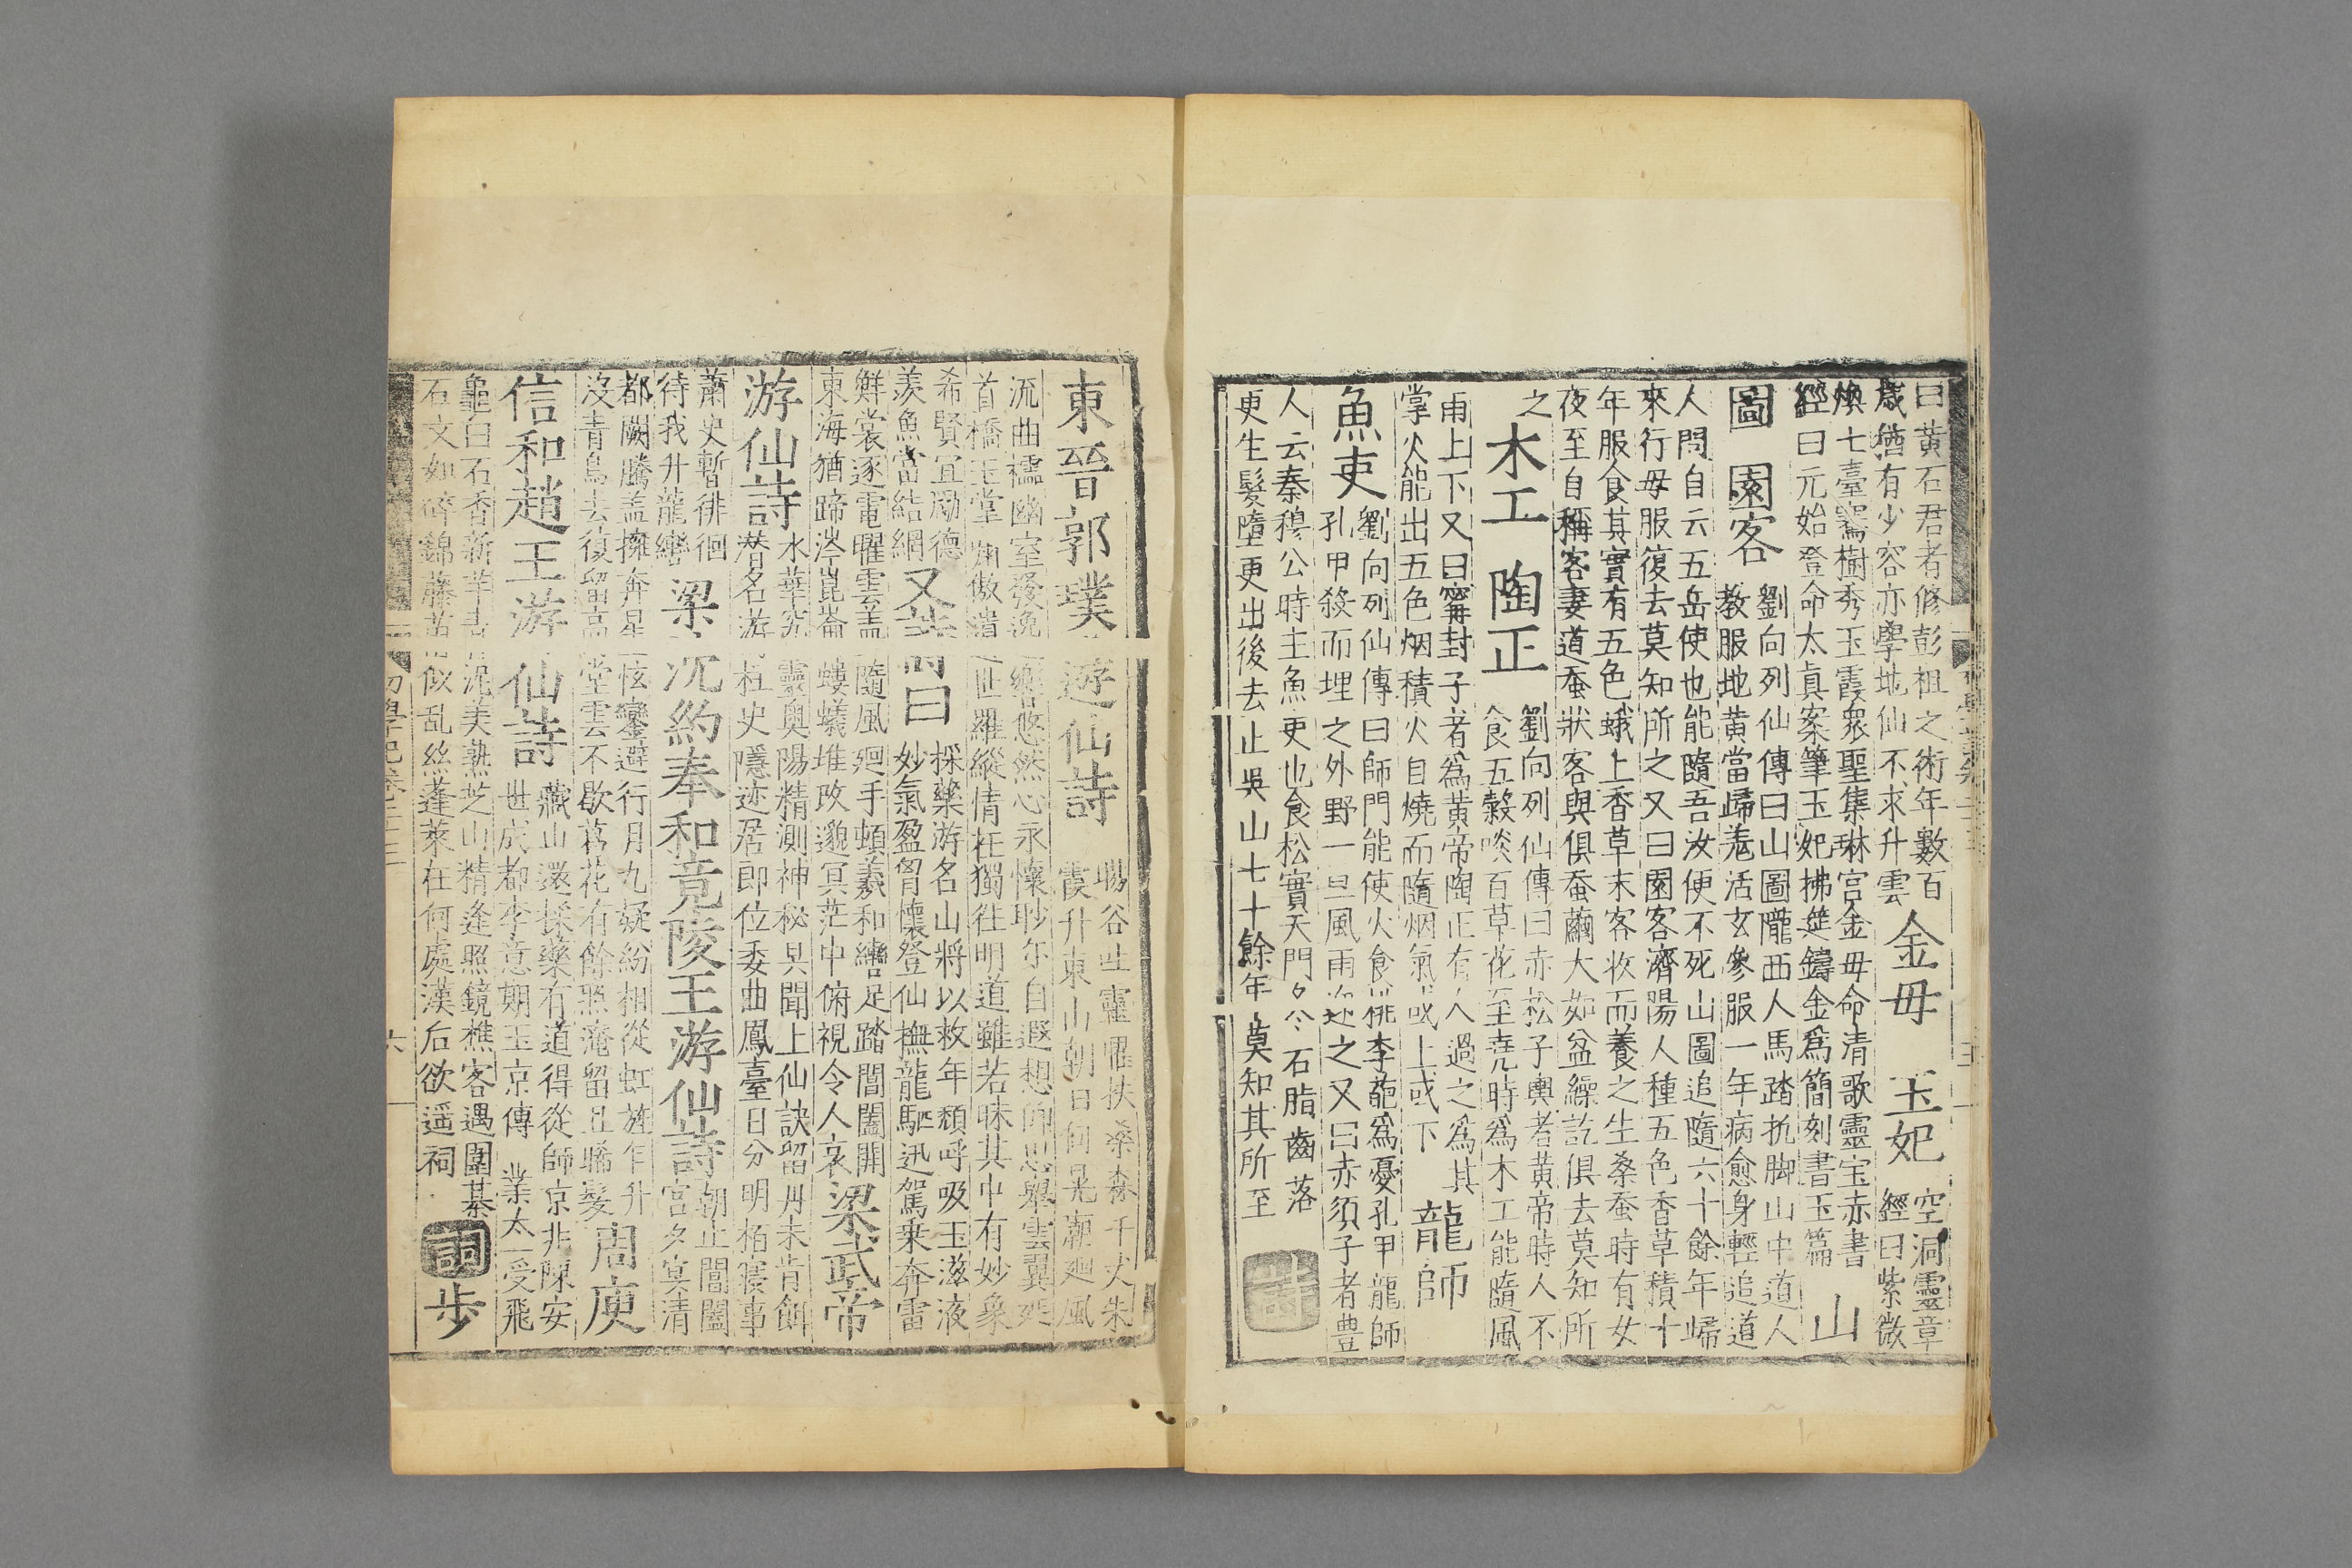 曰黃石君者修彭祖之術年數百
歲猶有少容亦學地仙不求升雲
金母 玉妃
空洞靈章
經曰紫微
煥七臺騫樹秀玉霞衆聖集琳宮金母命清歌靈宝赤書
經曰元始登命太真案筆玉妃拂筵鑄金爲簡刻書玉篇
山
圖 園客
劉向列仙傳曰山圖隴西人馬踏扤脚山中道人
教服地黃當歸羌活玄參服一年病愈身輕追道
人問自云五岳使也能隨吾汝便不死山圖追隨六十餘年歸
來行母服復去莫知所之又曰園客濟陽人種五色香草積十
年服食其實有五色蛾上香草末客收而養之生桑蚕時有女
夜至自稱客妻道蚕狀客與俱蚕繭大如盆繰訖俱去莫知所
之
木工 陶正
劉向列仙傳曰赤松子輿者黃帝時人不
食五穀啖百草花至堯時爲木工能隨風
雨上下又曰甯封子者爲黃帝陶正有人過之爲其
掌火能出五色烟積火自燒而隨烟氣或上或下
龍師
魚吏
劉向列仙傳曰師門能使火食桃李葩爲憂孔甲龍師
孔甲殺而埋之外野一旦風雨迎之又曰赤須子者豊
人云秦穆公時主魚吏也食松實天門冬石脂齒落
更生髮墮更出後去止吳山七十餘年莫知其所至
詩
東晉郭璞遊仙詩
暘谷吐靈曜扶桑森千丈朱
霞升東山朝日何晃廊廻風
流曲櫺幽室發逸響悠然心永懷眇尓自遐想仰思舉雲翼延
首橋玉堂嘯傲遺世羅縱情在獨往明道雖若昧其中有妙象
希賢宜勵德
羨魚當結網
又詩曰
採藥游名山將以救年頹呼吸玉滋液
妙氣盈胷懷登仙撫龍駈迅駕乗奔雷
鮮裳逐電曜雲盖隨風廻手頓羲和轡足踏閶闔開
東海猶蹄涔崑崙螻蟻堆遐邈冥茫中俯視令人哀
梁武帝
游仙詩
水華究靈奥陽精測神秘具聞上仙訣留丹未肯餌
潜名游柱史隱迹居郎位委曲鳳臺日分明栢寝事
蕭史暫徘徊
待我升龍轡
梁沈約奉和竟陵王游仙詩
朝止閶闔
宮夕宴清
都闕騰盖擁奔星低鑾避行月九疑紛相從虹旌乍升
沒青鳥去復留高堂雲不歇若花有餘照淹留且晞髮
周庾
信和趙王游仙詩
藏山還採藥有道得從師京兆陳安
世成都李意期玉京傳業太一受飛
龜白石香新芋青泥美熟芝山精逢照鏡樵客遇圍棊
石文如碎錦藤苗似乱絲蓬萊在何處漢后欲遥祠
詞步
初學記卷二十三
六